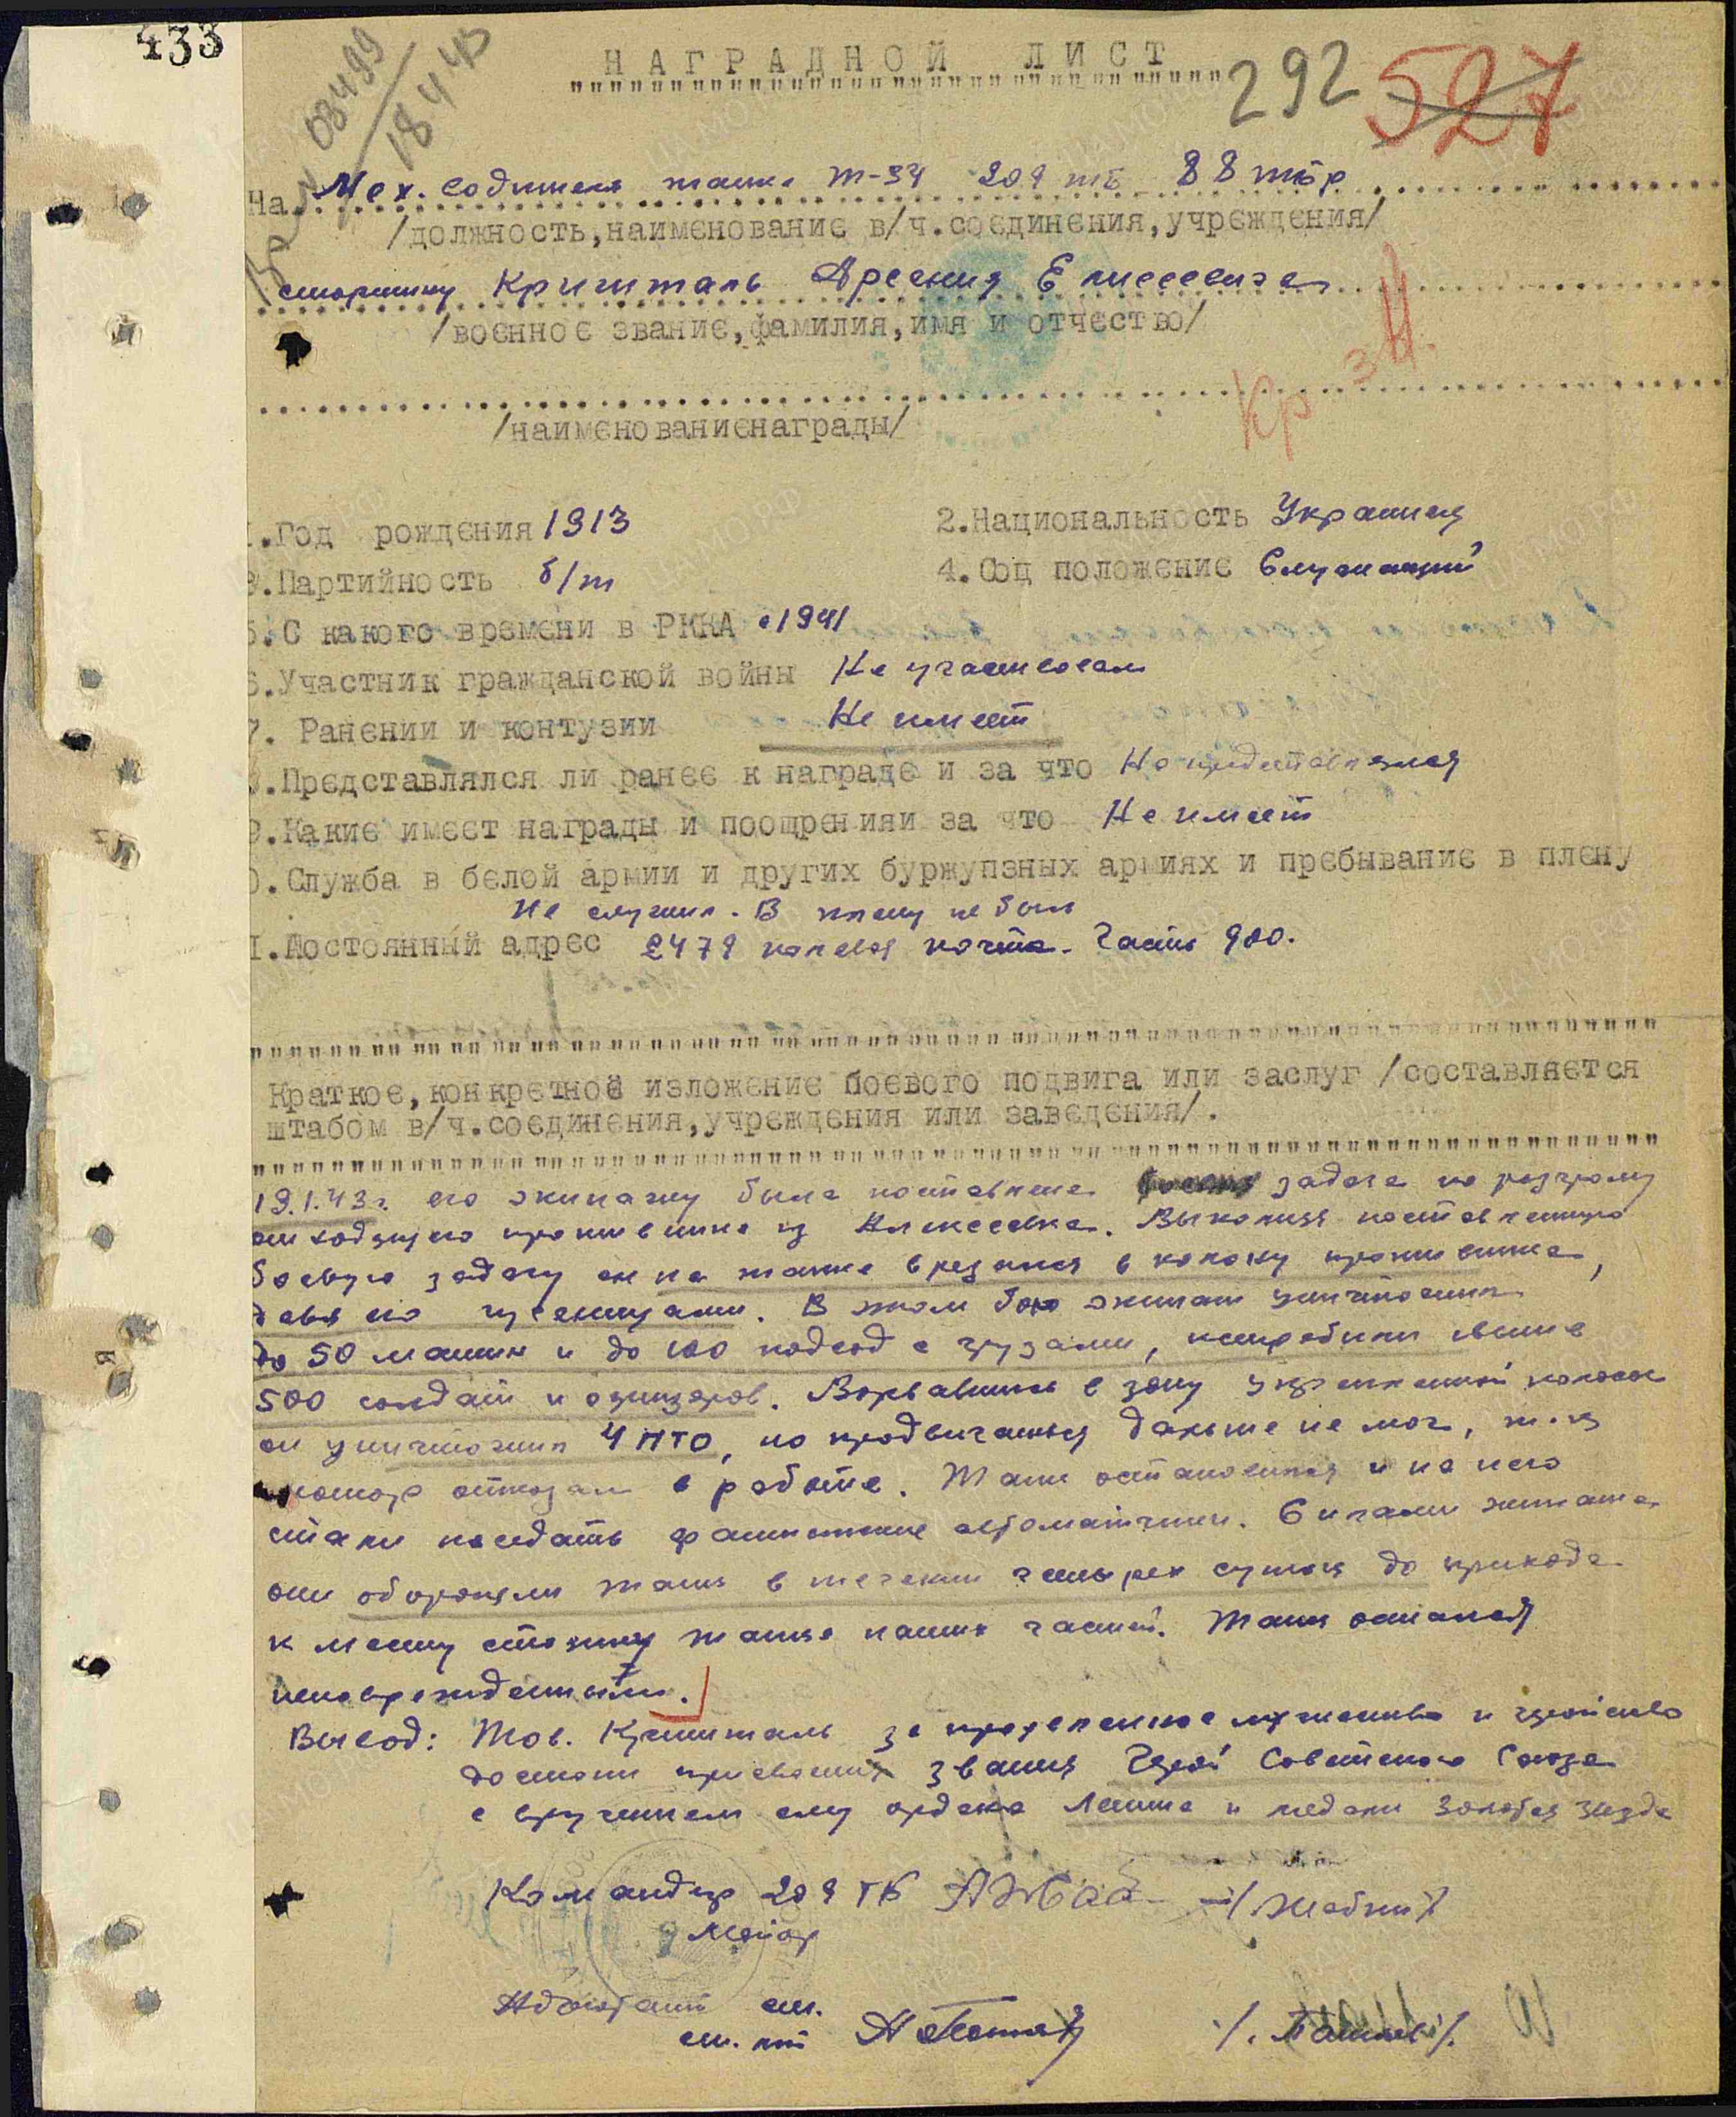 433
08499
18 4 43
НАГРАДНОЙ ЛИСТ
292 527
На Мех. водителя танка Т-34 209 тб 88 тбр
/должность,наименование в/ч.соединения,учреждения/
старшину Кришталь Арсения Елисеевича
/военное звание,фамилия,имя и отчество/
Кр зн.
/наименованиенаграды/
.Год рождения 1913
2.Национальность Украинец
3.Партийность б/п
4.Соц положение Служащий
5.С какого времени в РККА с 1941
6.Участник гражданской войны Не участвовал
7. Ранении и контузии Не имеет
.Представлялся ли ранее к награде и за что Не представлялся
9.Какие имеет награды и поощренияи за что Не имеет
0.Служба в белой армии и других буржупзных армиях и пребывание в плену
Не служил. В плену не был
I.Постоянный адрес 2479 полевая почта. Часть 900.
Краткое,конкретное изложение боевого подвига или заслуг /составляется
штабом в/ч.соединения,учреждения или заведения/.
19.1.43г. его экипажу была поставлена задача по разгрому
отходящего противника из Алексеевка. Выполняя поставленную
боевую задачу он на танке врезался в колону противника,
давя его гусеницами. В этом бою экипаж уничтожил
до 50 машин и до 100 подвод с грузами, истребили свыше
500 солдат и офицеров. Ворвавшись в зону укрепленной полосы
он уничтожил 4 ПТО, но продвигаться дальше не мог, т.к
мотор отказал в работе. Танк остановился и на него
стали наседать фашистские автоматчики. Силами экипажа
они обороняли танк в течении четырех суток до прихода
к месту стоянки танка наших частей. Танк остался
неповрежденным.
Вывод: Тов. Кришталь за проявленное мужество и геройство
достоин присвоения звания Герой Советского Союза
с вручением ему ордена Ленина и медали Золотая Звезда
Командир 209 ТБ
Майор
Адъютант ст.
ст. лт